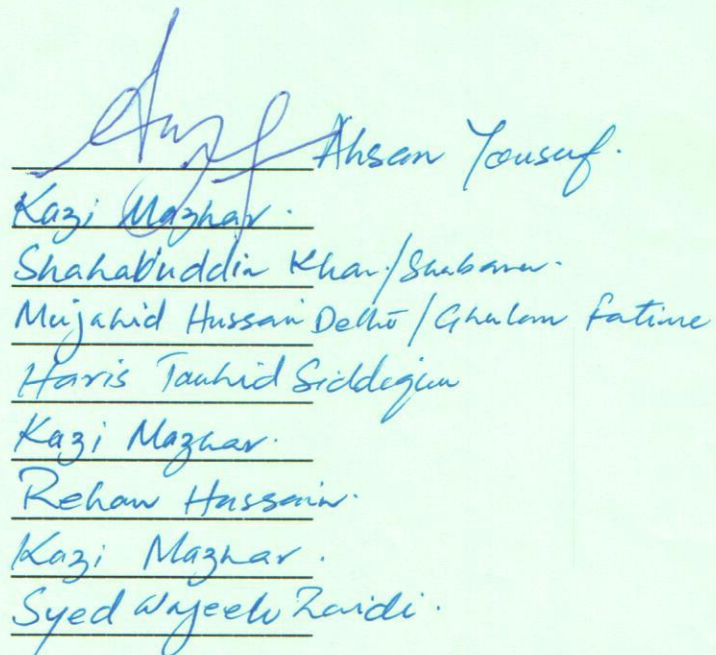 Ahsan Yousuf.
Kazi Mazhar.
Shahabuddin Khan/Shabana.
Mujahid Hussain Delhi/Ghulam Fatime
Haris Tauhid Siddiqui
Kazi Mazhar.
Rehan Hussain.
Kazi Mazhar.
Syed Wajeeh Zaidi.